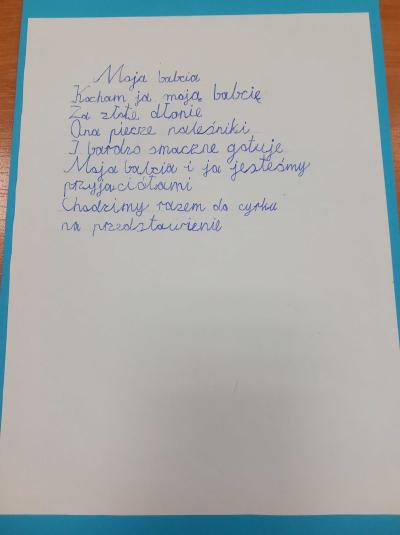 Moja babcia
Kocham ja moją babcię
Za złote dłonie
Ona piecze naleśniki
I bardzo smaczne gotuje
Moja babcia i ja jesteśmy
przyjaciółami
Chodzimy razem do cyrku
na przedstawienie